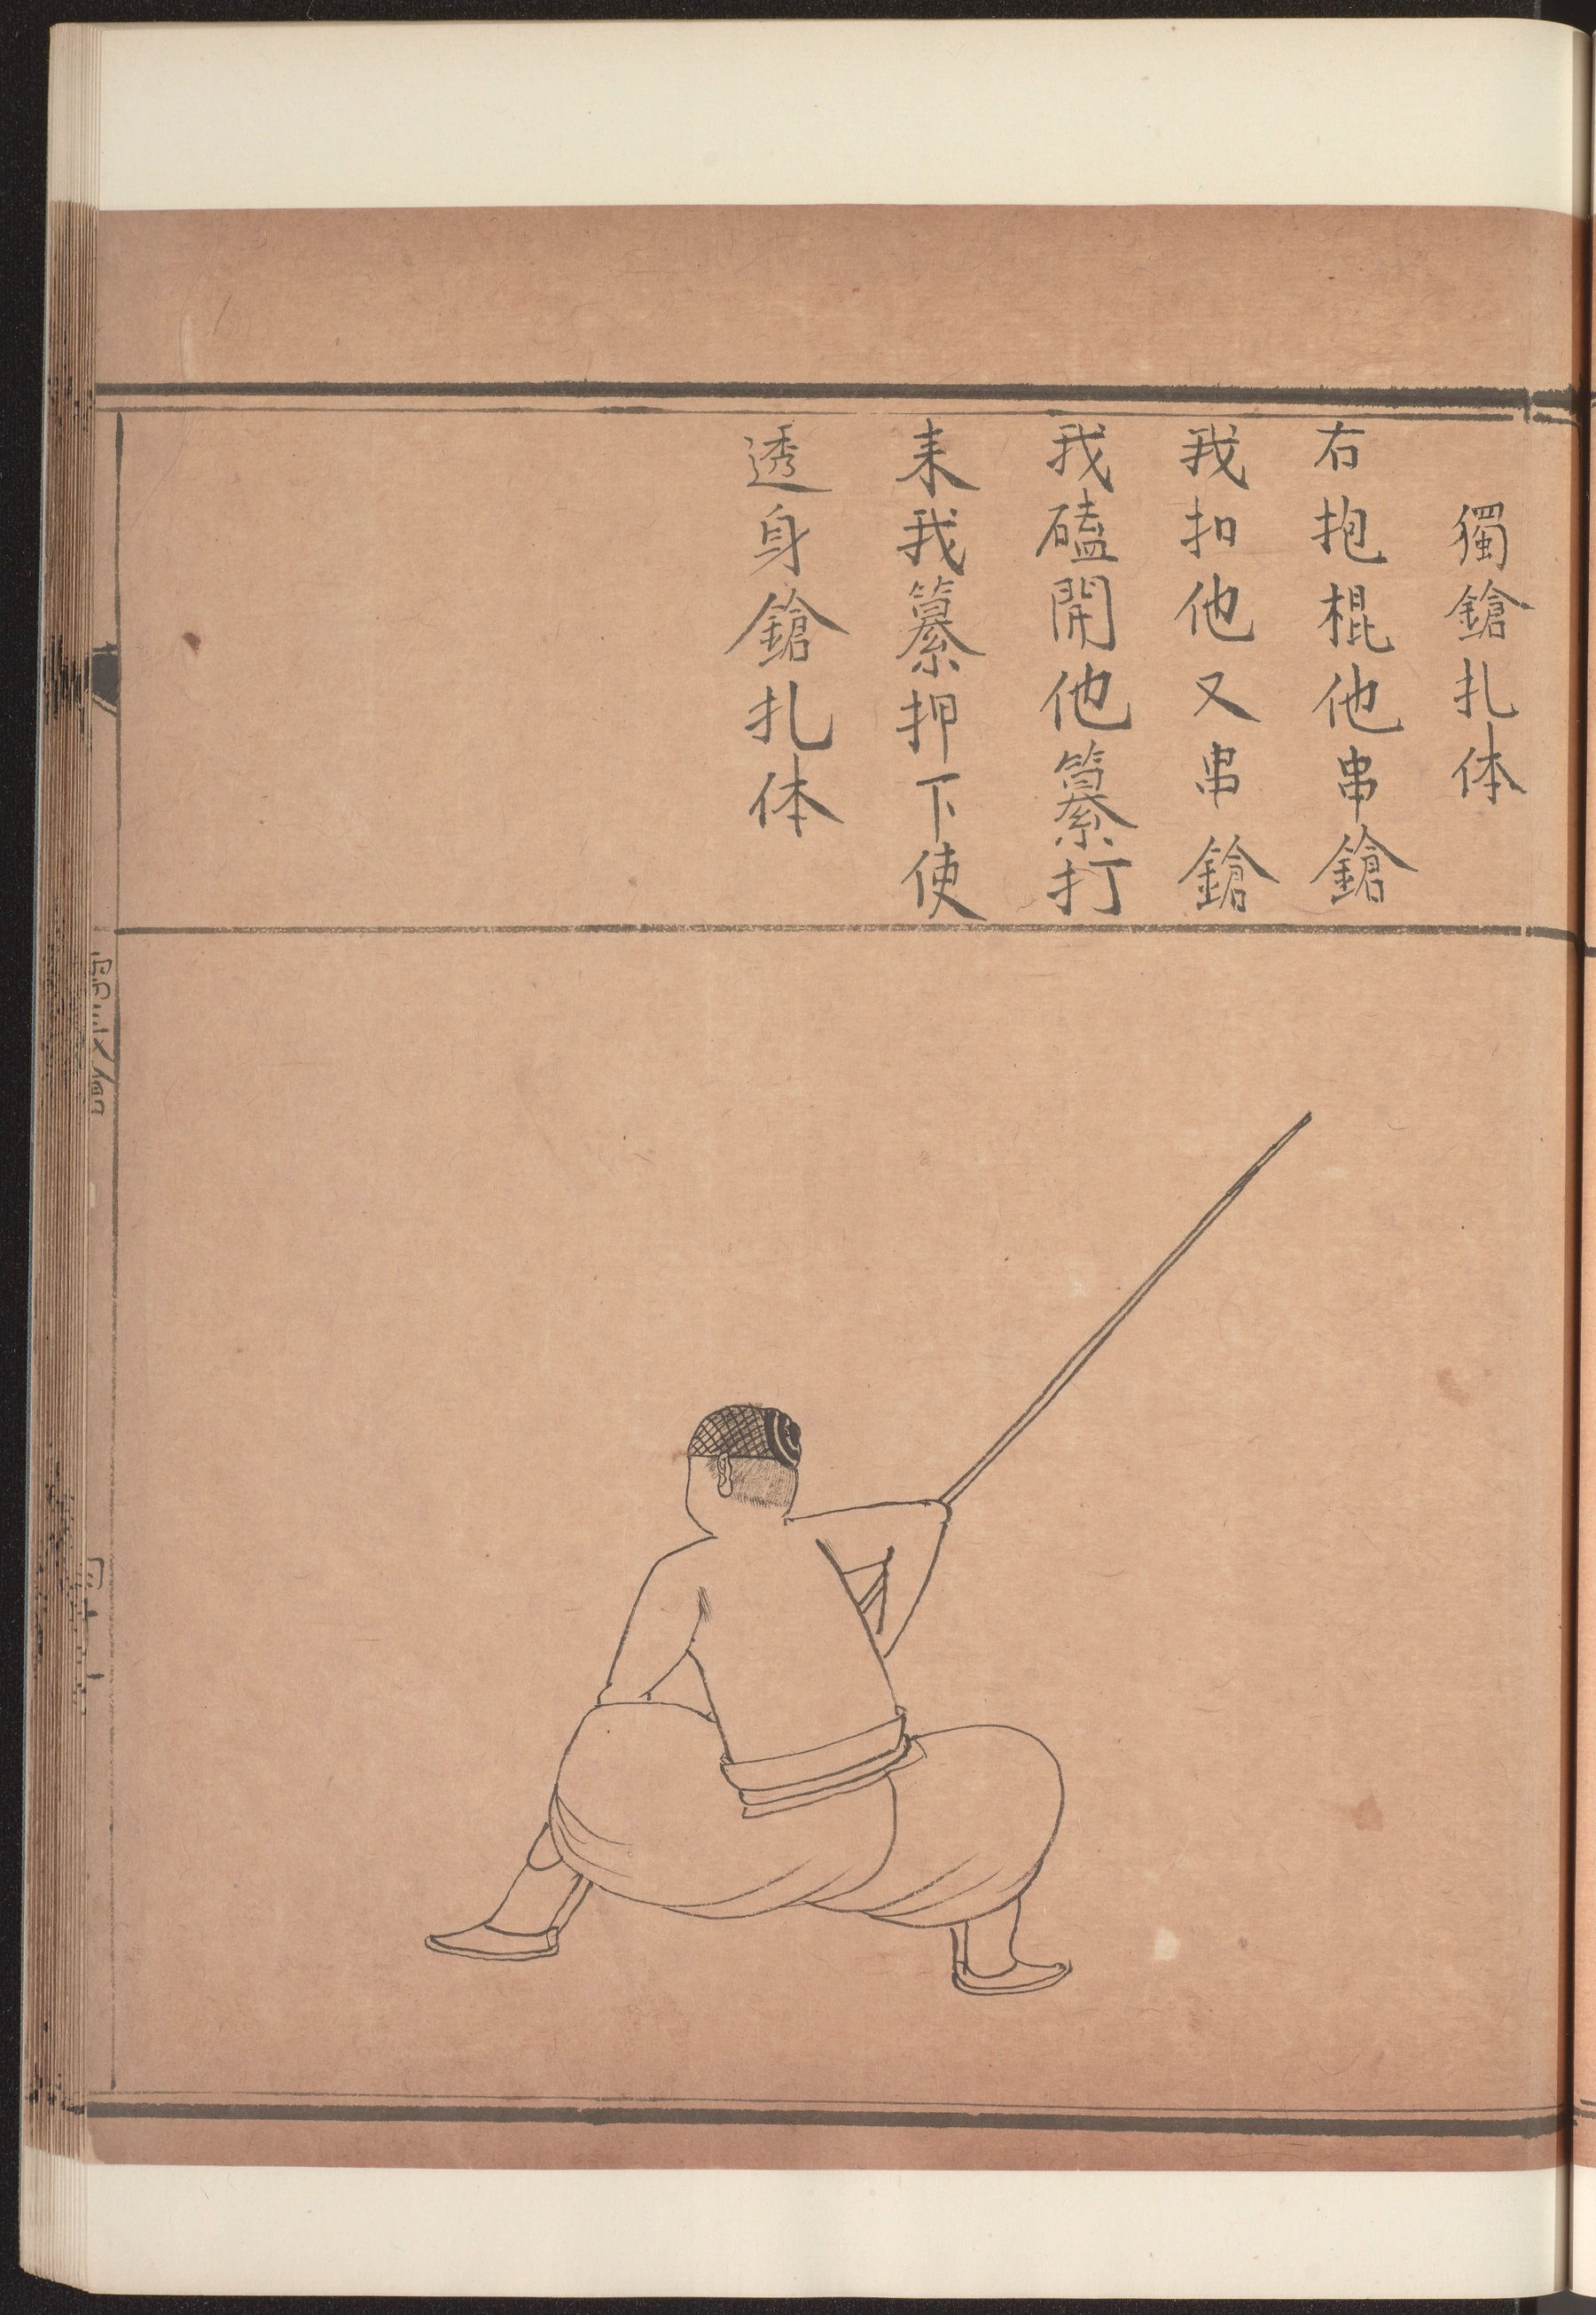 獨鎗扎体
右抱棍他串鎗
我扣他又串鎗
我磕開他纂打
来我纂押下使
透身鎗扎体